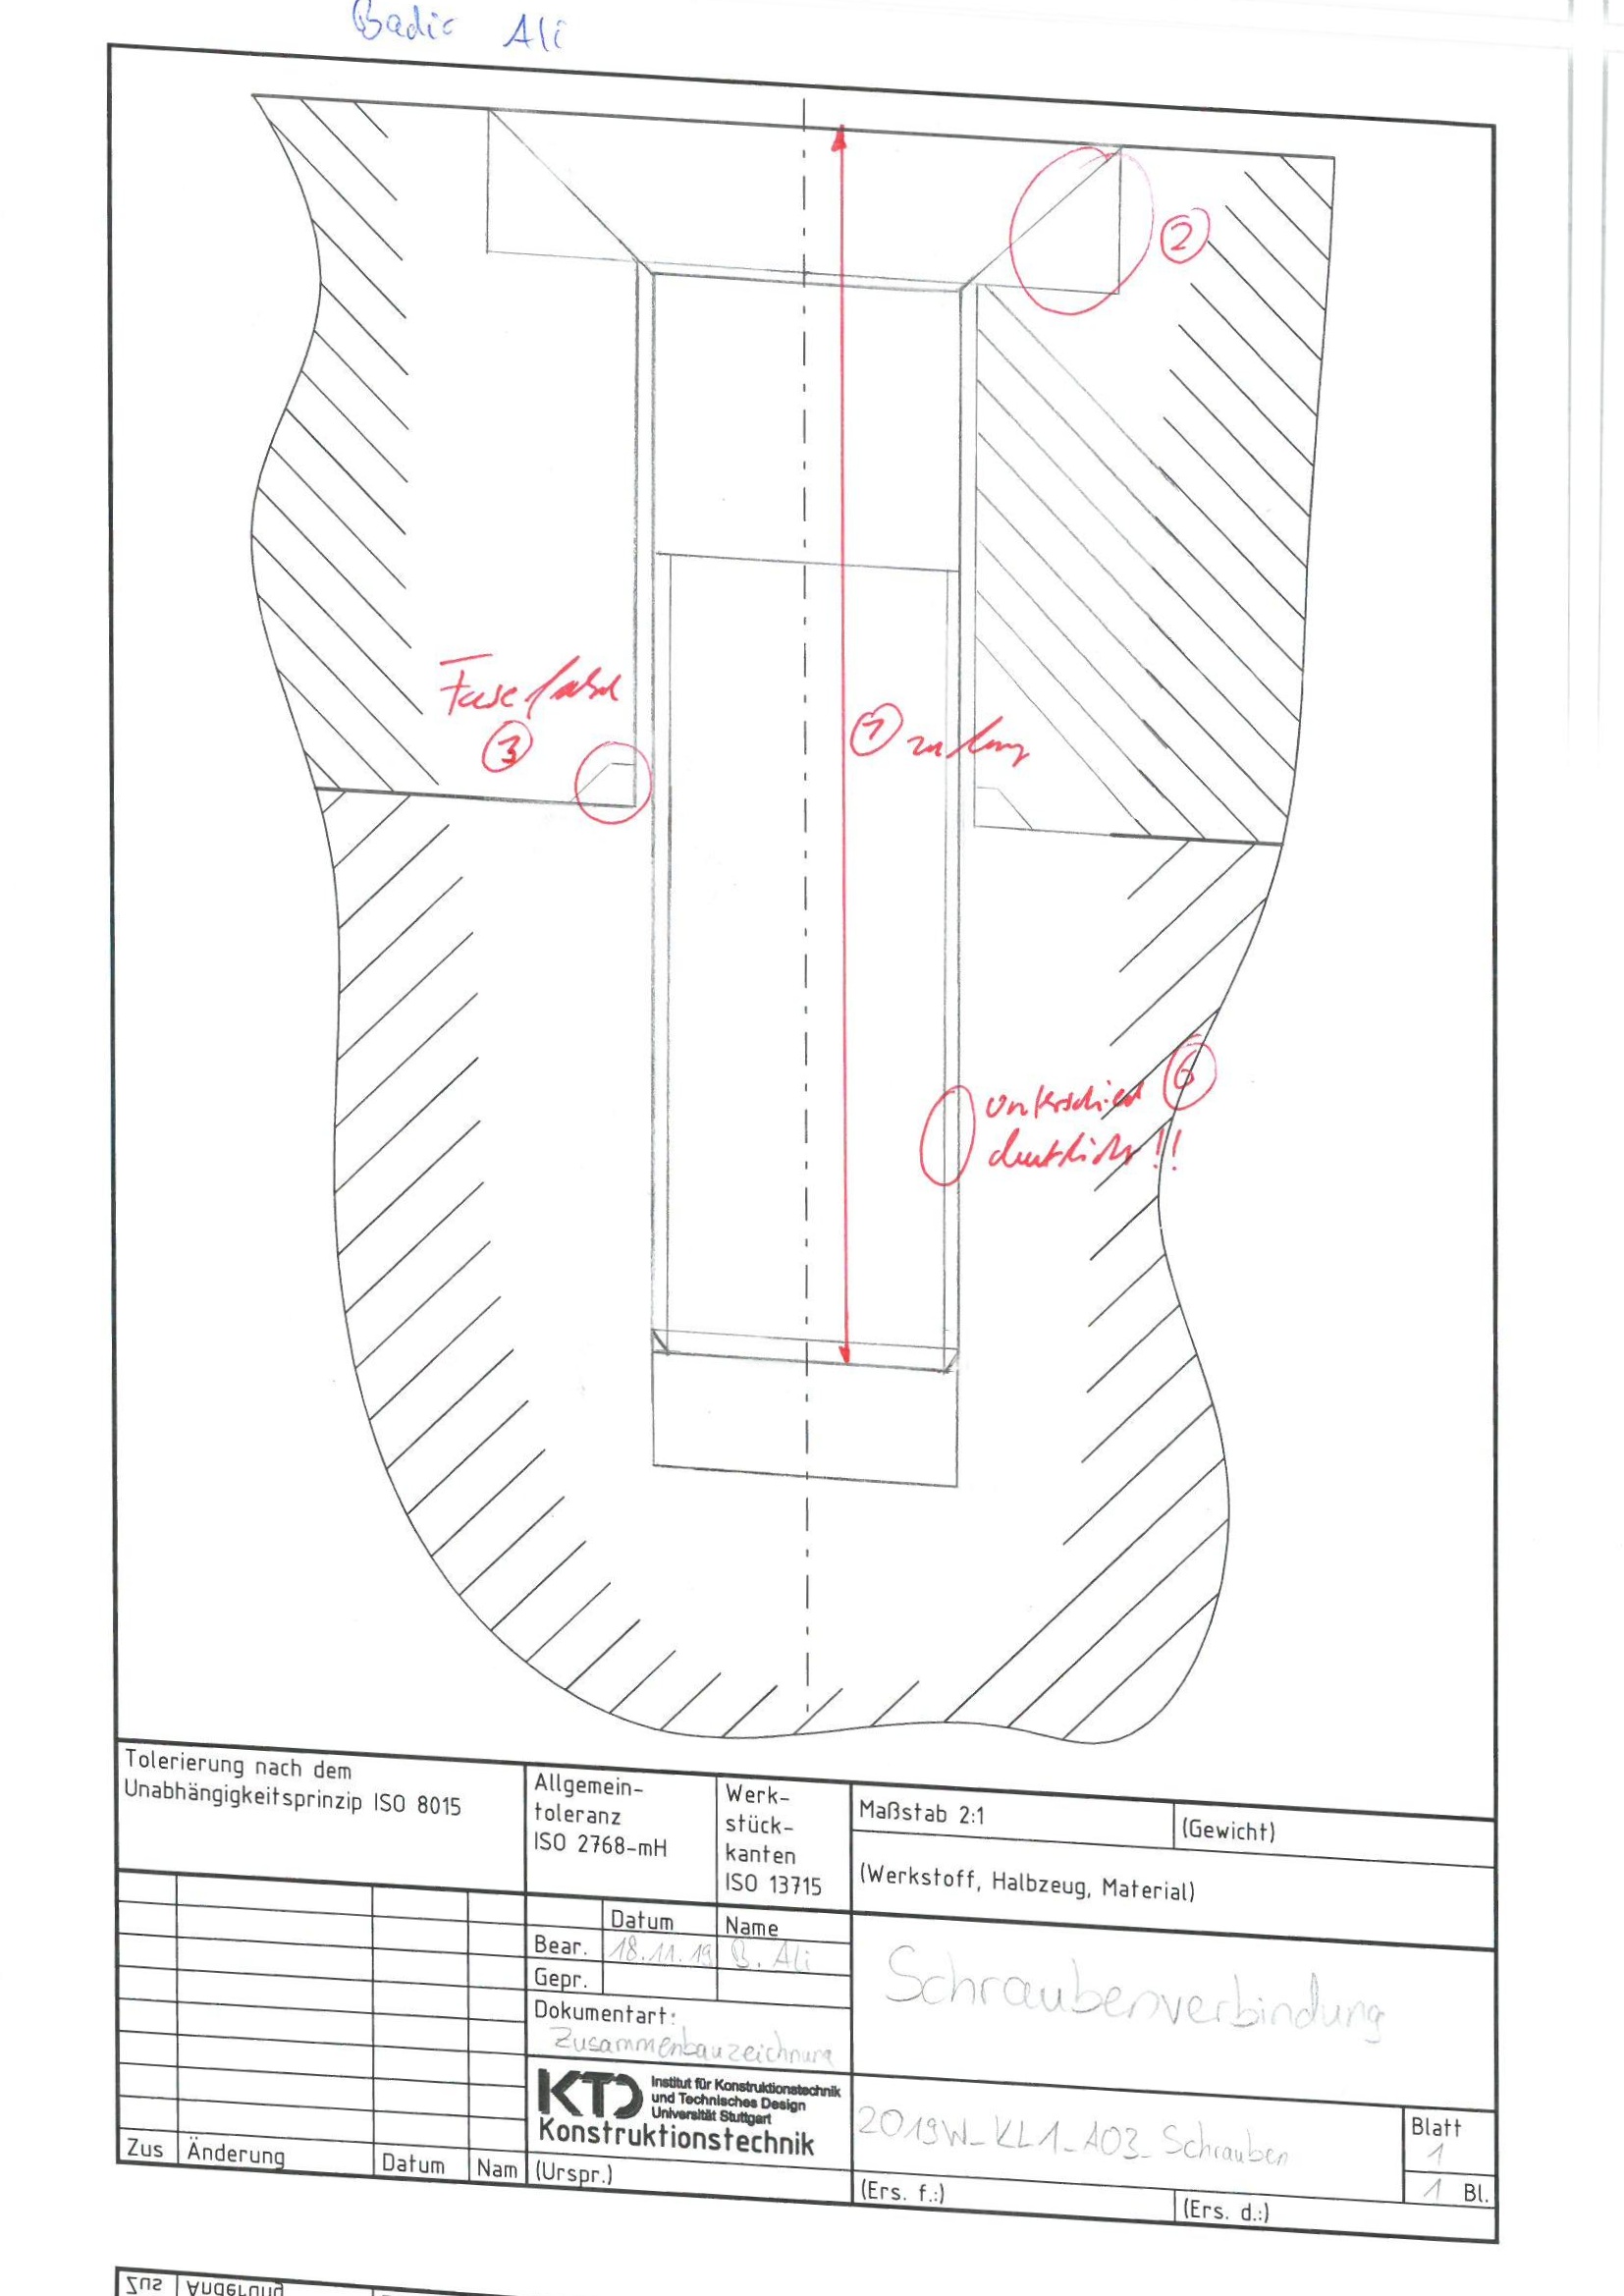 Badic Ali
②
Fase falsch
③
① zu lang
Unterschied ⑥
deutlich!!
Tolerierung nach dem
Unabhängigkeitsprinzip ISO 8015
Allgemein-
toleranz
ISO 2768-mH
Werk-
stück-
kanten
ISO 13715
Maßstab 2:1
(Gewicht)
(Werkstoff, Halbzeug, Material)
Datum Name
Bear. 18.11.19 B. Ali
Gepr.
Dokumentart:
Zusammenbauzeichnung
Schraubenverbindung
KTD Institut für Konstruktionstechnik
und Technisches Design
Universität Stuttgart
Konstruktionstechnik
2019W_KL1_A03_Schrauben
Blatt
1
1 Bl.
Zus Änderung Datum Nam (Urspr.)
(Ers. f.:)
(Ers. d.:)
Zus Änderung